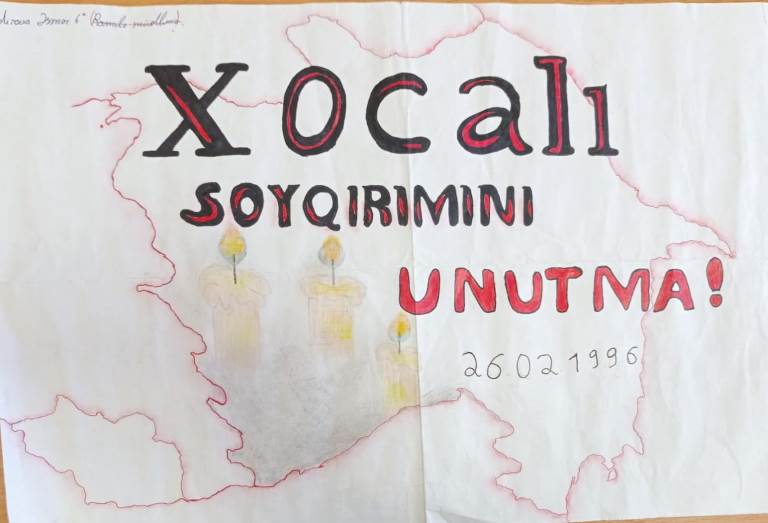 6ᵃ
Xocalı
SOYQIRIMINI
UNUTMA!
26.02 1996